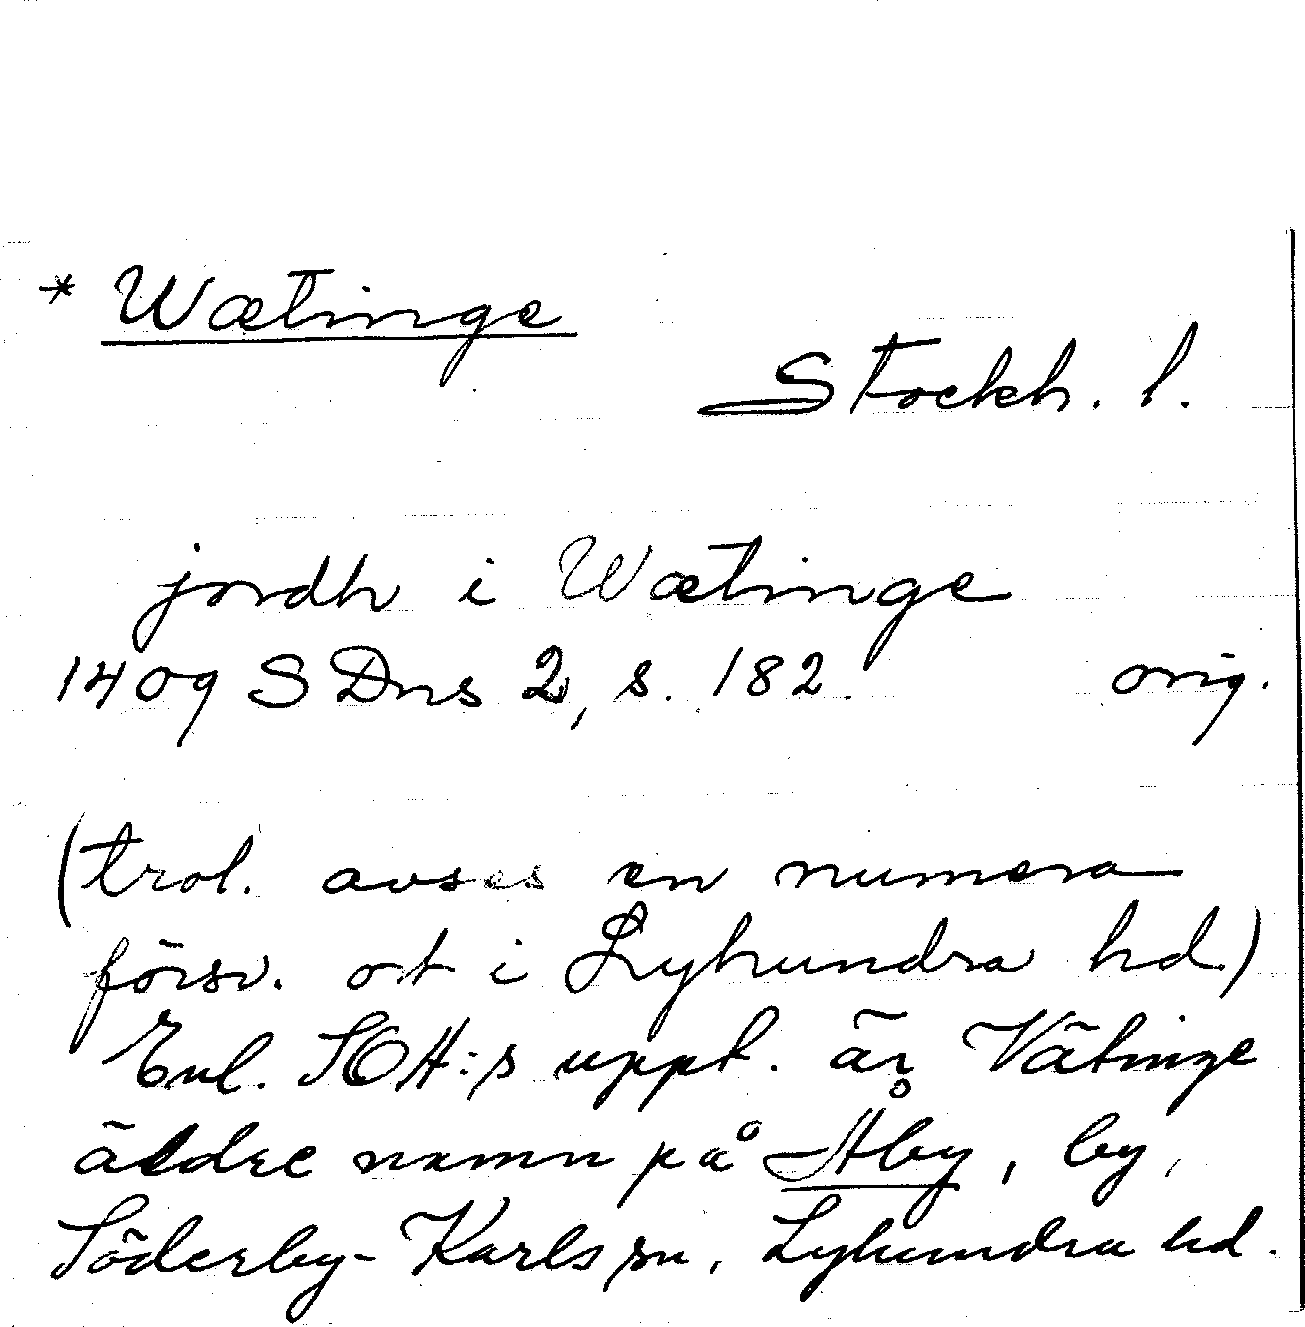 * Wætinge
Stockh. l.
jordh i Wætinge
1409 SDns 2, s. 182. orig.
(trol. avses en numera
försv. ort i Lyhundra hd.)
Enl. SOA:s uppt. är Vätinge
äldre namn på Åby, by,
Söderby-Karls sn, Lyhundra hd.